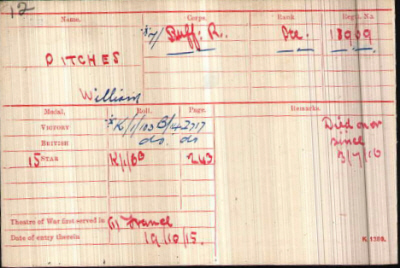 12
Name. Corps. Rank Regtl. No.
*7/ Suff: R. Pte. 18909
PITCHES
William
Medal. Roll. Page. Remarks.
VICTORY *K/1/103 B/14 2717
BRITISH do. do
15 STAR K/1/6B 243.
Died on or
since
3/7/16
Theatre of War first served in (1) France
Date of entry therein 19/10/15.
K. 1380.